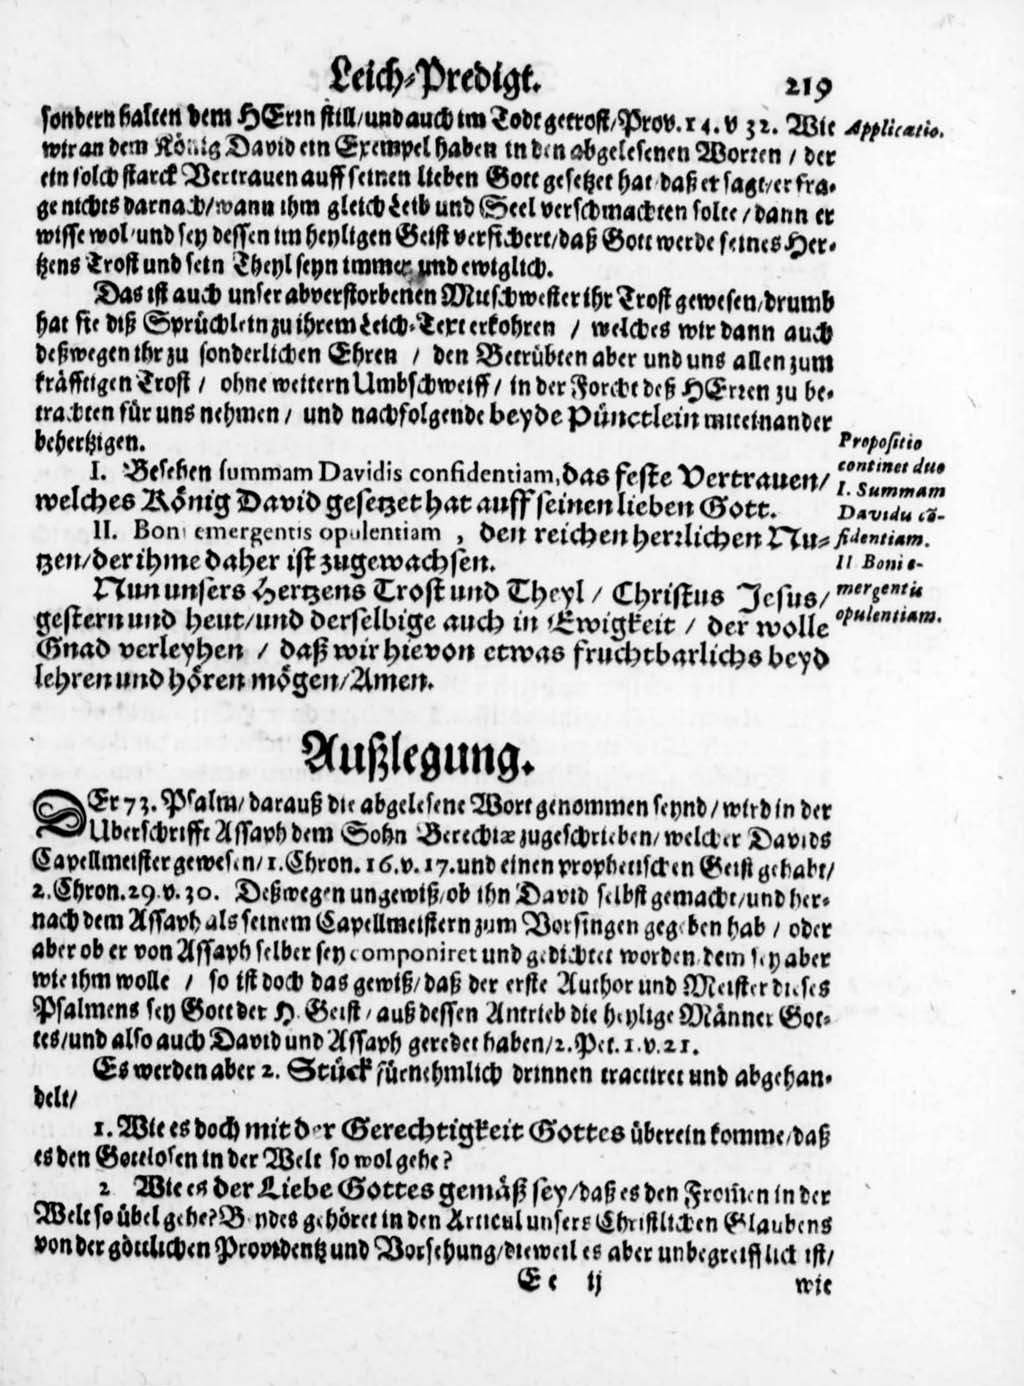 Leich-Predigt. 219
sondern halten dem HErrn still/und auch im Todt getrost/Prov. 14. v 32. Wie
wir an dem König David ein Exempel haben in den abgelesenen Worten / der
ein solch starck Vertrauen auff seinen lieben Gott gesetzet hat daß er sagt/er fra-
ge nichts darnach/wann ihm gleich Leib und Seel verschmachten solte / dann er
wisse wol/und sey dessen im heyligen Geist versichert/daß Gott werde seines Her-
tzens Trost und sein Theyl seyn immer und ewiglich.
Applicatio.
Das ist auch unser abverstorbenen Mitschwester ihr Trost gewesen/drumb
hat sie diß Sprüchlein zu ihrem Leich-Text erkohren / welches wir dann auch
deßwegen ihr zu sonderlichen Ehren / den Betrübten aber und uns allen zum
kräfftigen Trost / ohne weitern Umbschweiff / in der Forcht deß HErren zu be-
trachten für uns nehmen / und nachfolgende beyde Pünctlein miteinander
behertzigen.
I. Besehen summam Davidis confidentiam, das feste Vertrauen/
welches König David gesetzet hat auff seinen lieben Gott.
II. Boni emergentis opulentiam , den reichen herrlichen Nu-
tzen/der ihme daher ist zugewachsen.
Propositio
continet duo
I. Summam
Davidis cō-
fidentiam.
II Boni e-
mergentis
opulentiam.
Nun unsers Hertzens Trost und Theyl / Christus Jesus/
gestern und heut/und derselbige auch in Ewigkeit / der wolle
Gnad verleyhen / daß wir hievon etwas fruchtbarlichs beyd
lehren und hören mögen/Amen.
Außlegung.
DEr 73. Psalm/ darauß die abgelesene Wort genommen seynd / wird in der
Uberschrifft Assaph dem Sohn Berechiæ zugeschrieben/ welcher Davids
Capellmeister gewesen/ 1. Chron. 16. v. 17. und einen prophetischen Geist gehabt/
2. Chron. 29. v. 30. Deßwegen ungewiß/ob ihn David selbst gemacht/und her-
nach dem Assaph als seinem Capellmeistern zum Vorsingen gegeben hab / oder
aber ob er von Assaph selber sey componiret und gedichtet worden/dem sey aber
wie ihm wolle / so ist doch das gewiß/daß der erste Author und Meister dieses
Psalmens sey Gott der H. Geist / auß dessen Antrieb die heylige Männer Got-
tes/und also auch David und Assaph geredet haben/2. Pet. 1. v. 21.
Es werden aber 2. Stück fürnehmlich drinnen tractiret und abgehan-
delt/
1. Wie es doch mit der Gerechtigkeit Gottes überein komme/daß
es den Gottlosen in der Welt so wol gehe?
2 Wie es der Liebe Gottes gemäß sey/daß es den From̃en in der
Welt so übel gehe? Beydes gehöret in den Articul unsers Christlichen Glaubens
von der göttlichen Providentz und Vorsehung/dieweil es aber unbegreifflich ist/
Ee ij wie